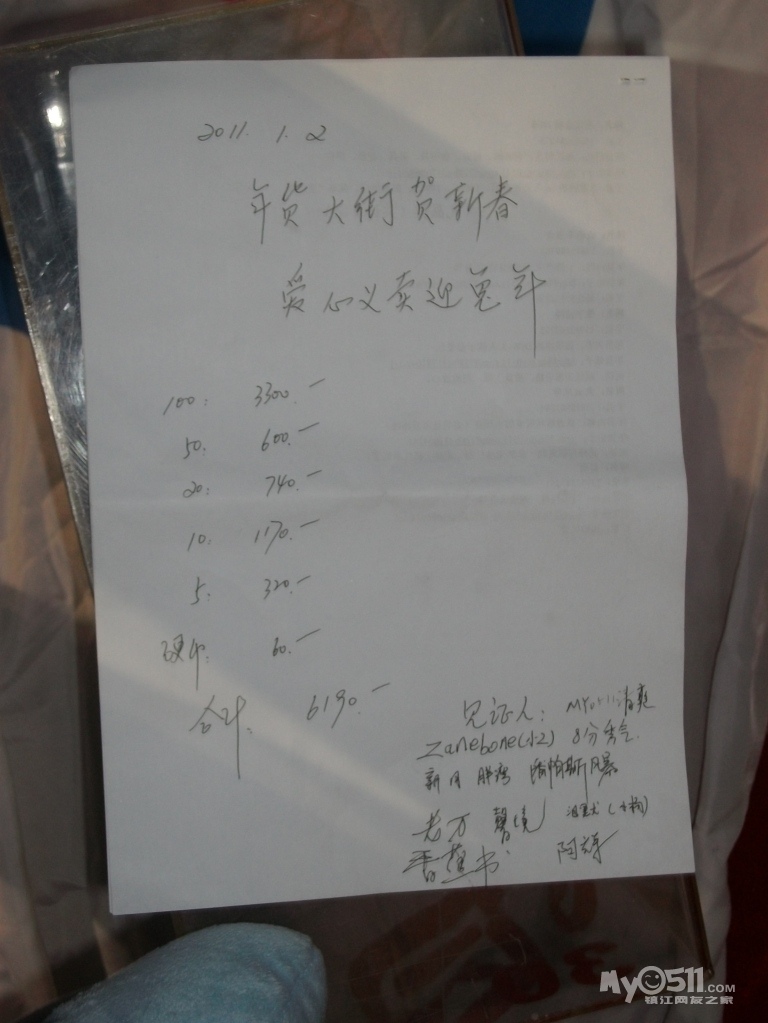 2011. 1. 2
年货大街贺新春
爱心义卖迎兔年
100: 3300.—
50: 600.—
20: 740.—
10: 1170.—
5: 320.—
硬币: 60.—
合计: 6190.—
见证人: My0511清爽
Zanebone(小Z) 8分秀气
新月 胖湾 风暴
老万
香 书 阿
My0511.COM
镇江网友之家